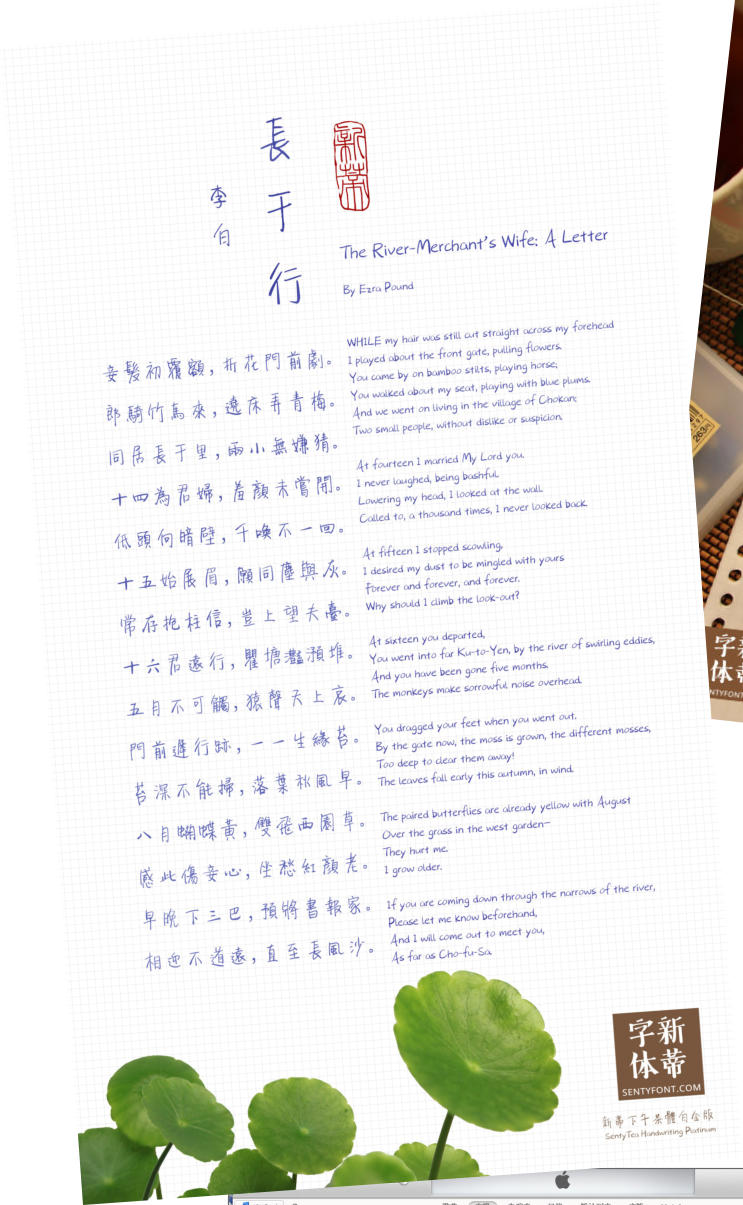 長于行
李白
新蒂
The River-Merchant's Wife: A Letter
By Ezra Pound
妾髮初覆額，折花門前劇。
郎騎竹馬來，遶床弄青梅。
同居長干里，兩小無嫌猜。
十四為君婦，羞顏未嘗開。
低頭向暗壁，千喚不一回。
十五始展眉，願同塵與灰。
常存抱柱信，豈上望夫臺。
十六君遠行，瞿塘灩澦堆。
五月不可觸，猿聲天上哀。
門前遲行跡，一一生綠苔。
苔深不能掃，落葉秋風早。
八月蝴蝶黃，雙飛西園草。
感此傷妾心，坐愁紅顏老。
早晚下三巴，預將書報家。
相迎不道遠，直至長風沙。
WHILE my hair was still cut straight across my forehead
I played about the front gate, pulling flowers.
You came by on bamboo stilts, playing horse;
You walked about my seat, playing with blue plums.
And we went on living in the village of Chokan:
Two small people, without dislike or suspicion.
At fourteen I married My Lord you.
I never laughed, being bashful.
Lowering my head, I looked at the wall.
Called to, a thousand times, I never looked back.
At fifteen I stopped scowling,
I desired my dust to be mingled with yours
Forever and forever, and forever.
Why should I climb the look-out?
At sixteen you departed,
You went into far Ku-to-Yen, by the river of swirling eddies,
And you have been gone five months.
The monkeys make sorrowful noise overhead.
You dragged your feet when you went out.
By the gate now, the moss is grown, the different mosses,
Too deep to clear them away!
The leaves fall early this autumn, in wind.
The paired butterflies are already yellow with August
Over the grass in the west garden—
They hurt me.
I grow older.
If you are coming down through the narrows of the river,
Please let me know beforehand,
And I will come out to meet you,
As far as Cho-fu-Sa.
字新
体蒂
SENTYFONT.COM
新蒂下午茶體白金版
SentyTea Handwriting Platinum
263円
字新
体蒂